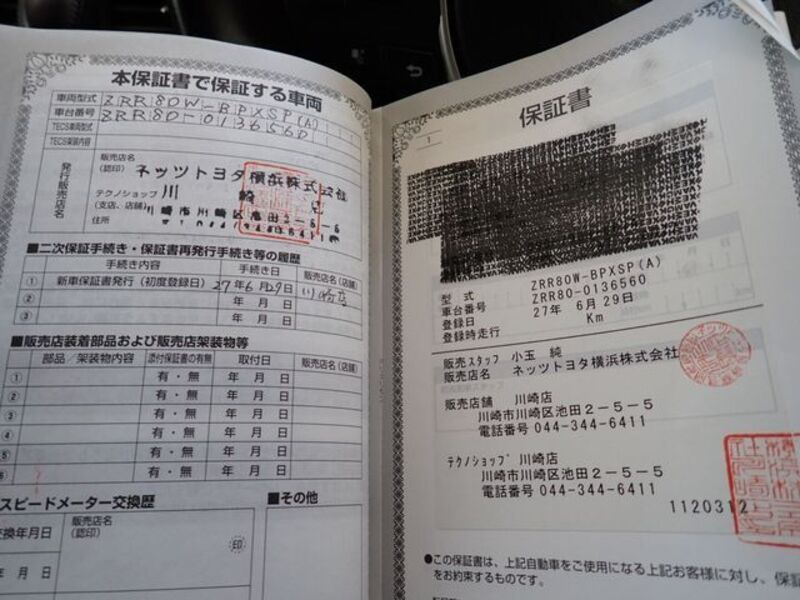 本保証書で保証する車両
車両型式 ZRR80W-BPXSP(A)
車台番号 ZRR80-0136560
TECS車両型式
TECS架装内容
発行販売店名
販売店名
(認印)
ネッツトヨタ横浜株式会社
テクノショップ 川崎店
(支店、店舗)
住所 川崎市川崎区池田2-5-5
■二次保証手続き・保証書再発行手続き等の履歴
手続き内容 手続き日 販売店名(店舗)
① 新車保証書発行(初度登録日) 27年6月29日 川崎店
② 年 月 日
③ 年 月 日
■販売店装着部品および販売店架装物等
部品/架装物内容 添付保証書の有無 取付日 販売店名(店舗)
① 有・無 年 月 日
② 有・無 年 月 日
③ 有・無 年 月 日
④ 有・無 年 月 日
⑤ 有・無 年 月 日
⑥ 有・無 年 月 日
スピードメーター交換歴
交換年月日 販売店名
(認印)
年 月 日
印
■その他
保証書
1
型式 ZRR80W-BPXSP(A)
車台番号 ZRR80-0136560
登録日 27年 6月29日
登録時走行 Km
販売スタッフ 小玉 純
販売店名 ネッツトヨタ横浜株式会社
販売店舗 川崎店
川崎市川崎区池田2-5-5
電話番号 044-344-6411
テクノショップ 川崎店
川崎市川崎区池田2-5-5
電話番号 044-344-6411
1120312
●この保証書は、上記自動車をご使用になる上記お客様に対し、保証
をお約束するものです。